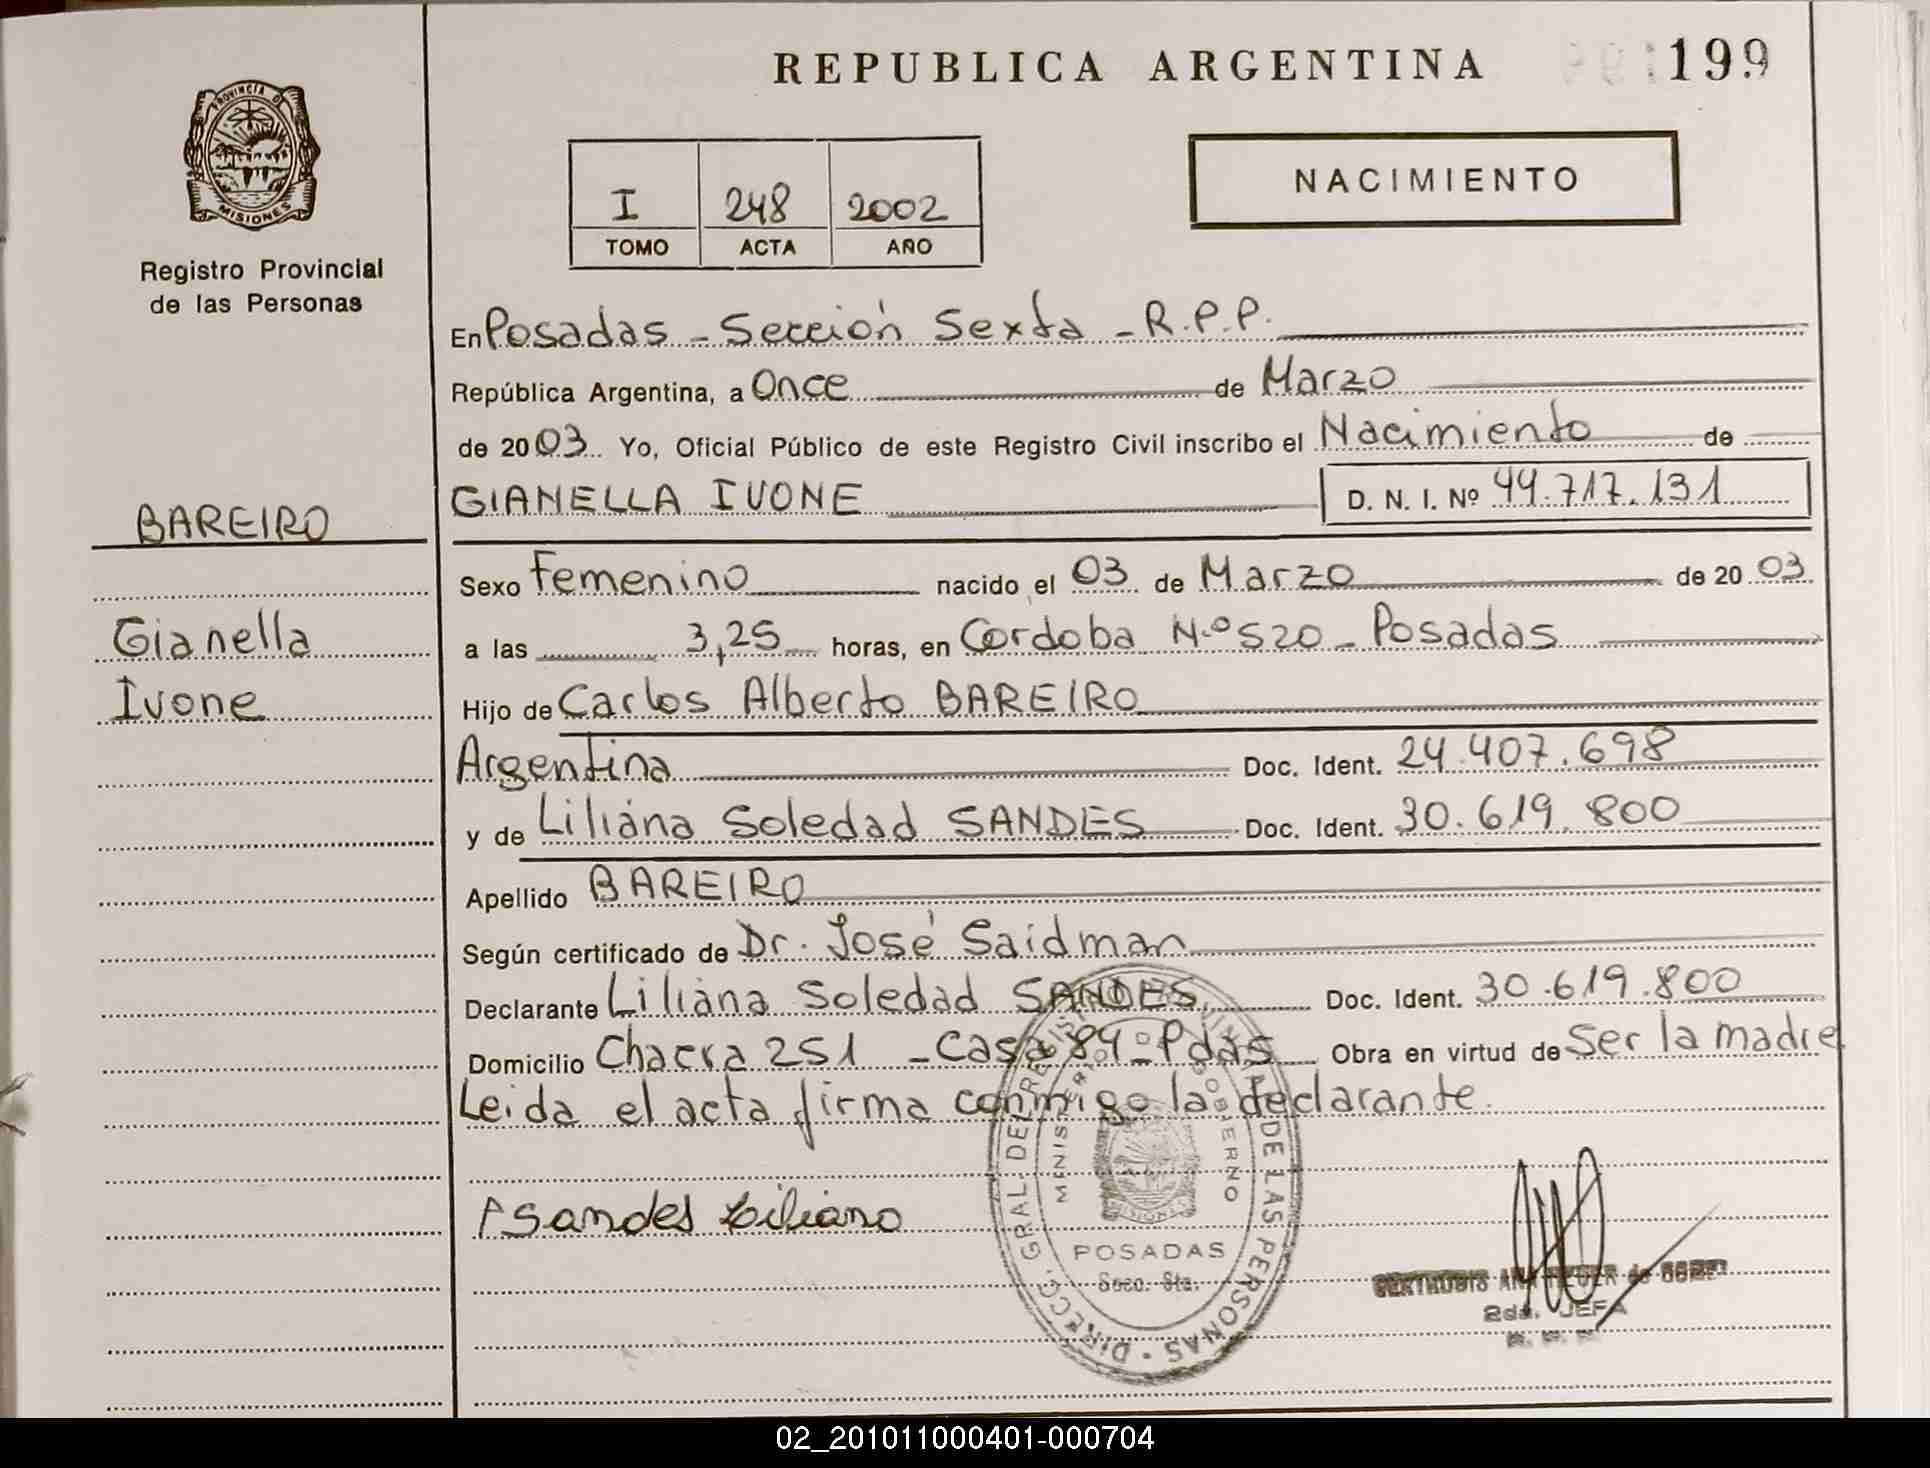 REPUBLICA ARGENTINA
199
PROVINCIA DE
MISIONES
Registro Provincial
de las Personas
I 248 2002
TOMO ACTA AÑO
NACIMIENTO
En Posadas - Sección Sexta - R.P.P.
República Argentina, a Once de Marzo
de 2003 Yo, Oficial Público de este Registro Civil inscribo el Nacimiento de
GIANELLA IVONE D. N. I. Nº 44.717.131
BAREIRO
Gianella
Ivone
Sexo Femenino nacido el 03 de Marzo de 2003
a las 3,25 horas, en Cordoba N.º 520 - Posadas
Hijo de Carlos Alberto BAREIRO
Argentina Doc. Ident. 24.407.698
y de Liliana Soledad SANDES Doc. Ident. 30.619.800
Apellido BAREIRO
Según certificado de Dr. José Saidman
Declarante Liliana Soledad SANDES Doc. Ident. 30.619.800
Domicilio Chacra 251 - Casa 84 - Pdas Obra en virtud de Ser la madre
Leida el acta firma conmigo la declarante.
Sandes Liliana
DIRECC. GRAL. DEL REGISTRO PROVINCIAL DE LAS PERSONAS
MINISTERIO DE GOBIERNO
MISIONES
POSADAS
Secc. 6ta.
2da. JEFA
R. P. P.
02_201011000401-000704